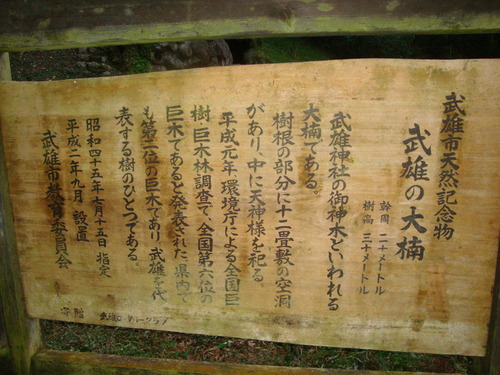 武雄市天然記念物
武雄の大楠
幹周 二十メートル
樹高 三十メートル
武雄神社の御神木といわれる
大楠である。
樹根の部分に十二畳敷の空洞
があり、中に天神様を祀る
平成元年環境庁による全国巨
樹・巨木林調査で、全国第六位の
巨木であると発表された。県内で
も第二位の巨木であり武雄を代
表する樹のひとつである。
昭和四十五年七月十五日 指定
平成二年九月 設置
武雄市教育委員会
寄贈